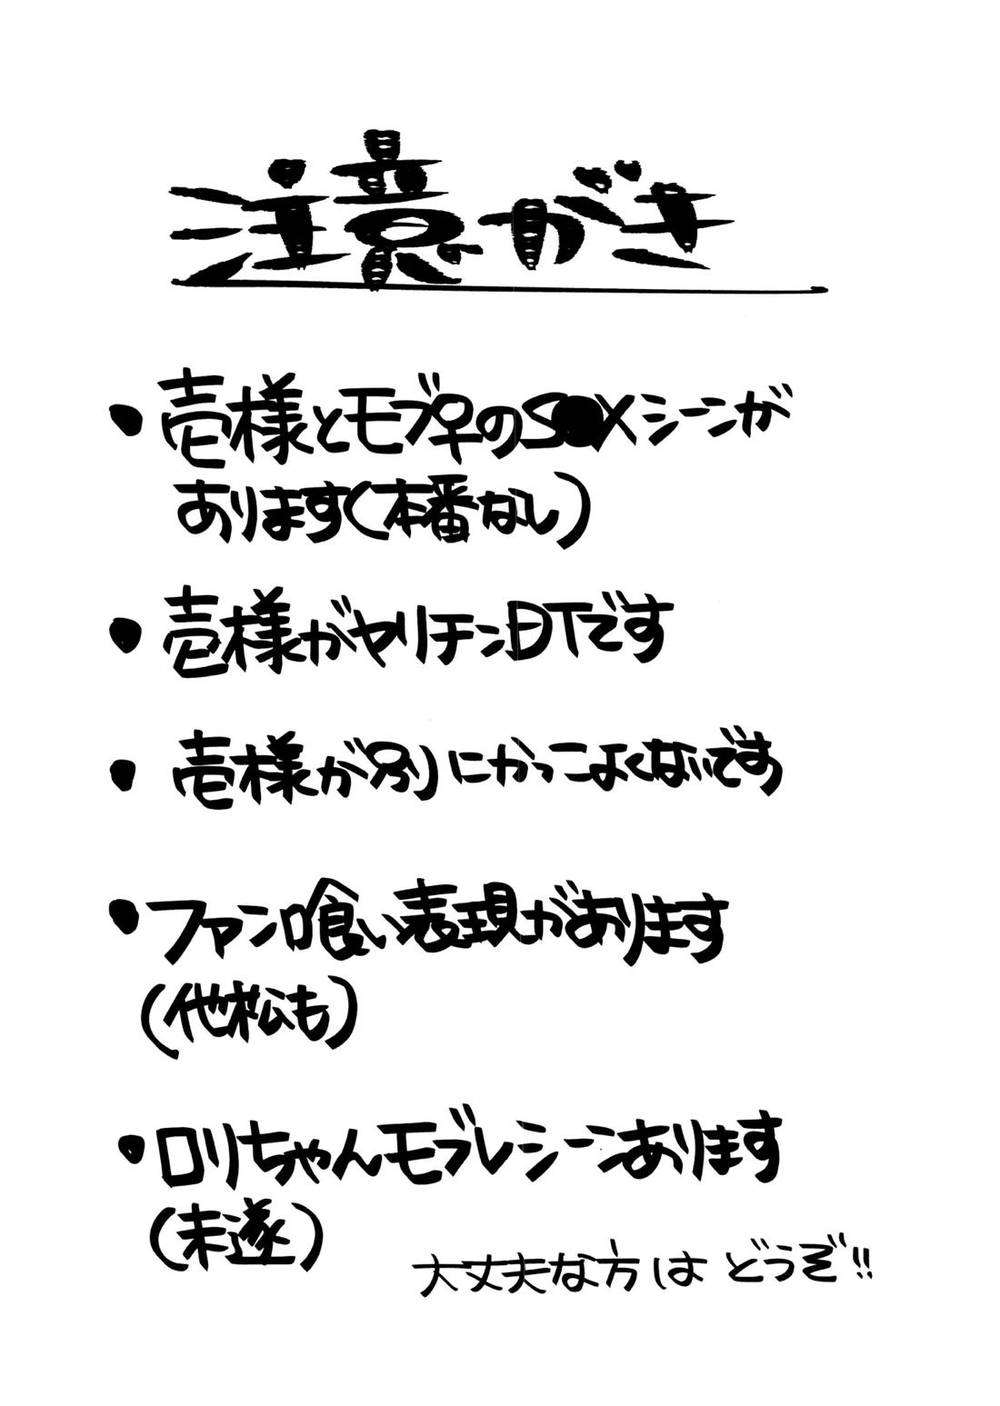 注意がき
・壱様とモブ♀のS●Xシーンが
あります(本番なし)
・壱様がヤリチンDTです
・壱様が別にかっこよくないです
・ファン喰い表現があります
(他松も)
・ロリちゃんモブレシーンあります
(未遂)
大丈夫な方は どうぞ!!